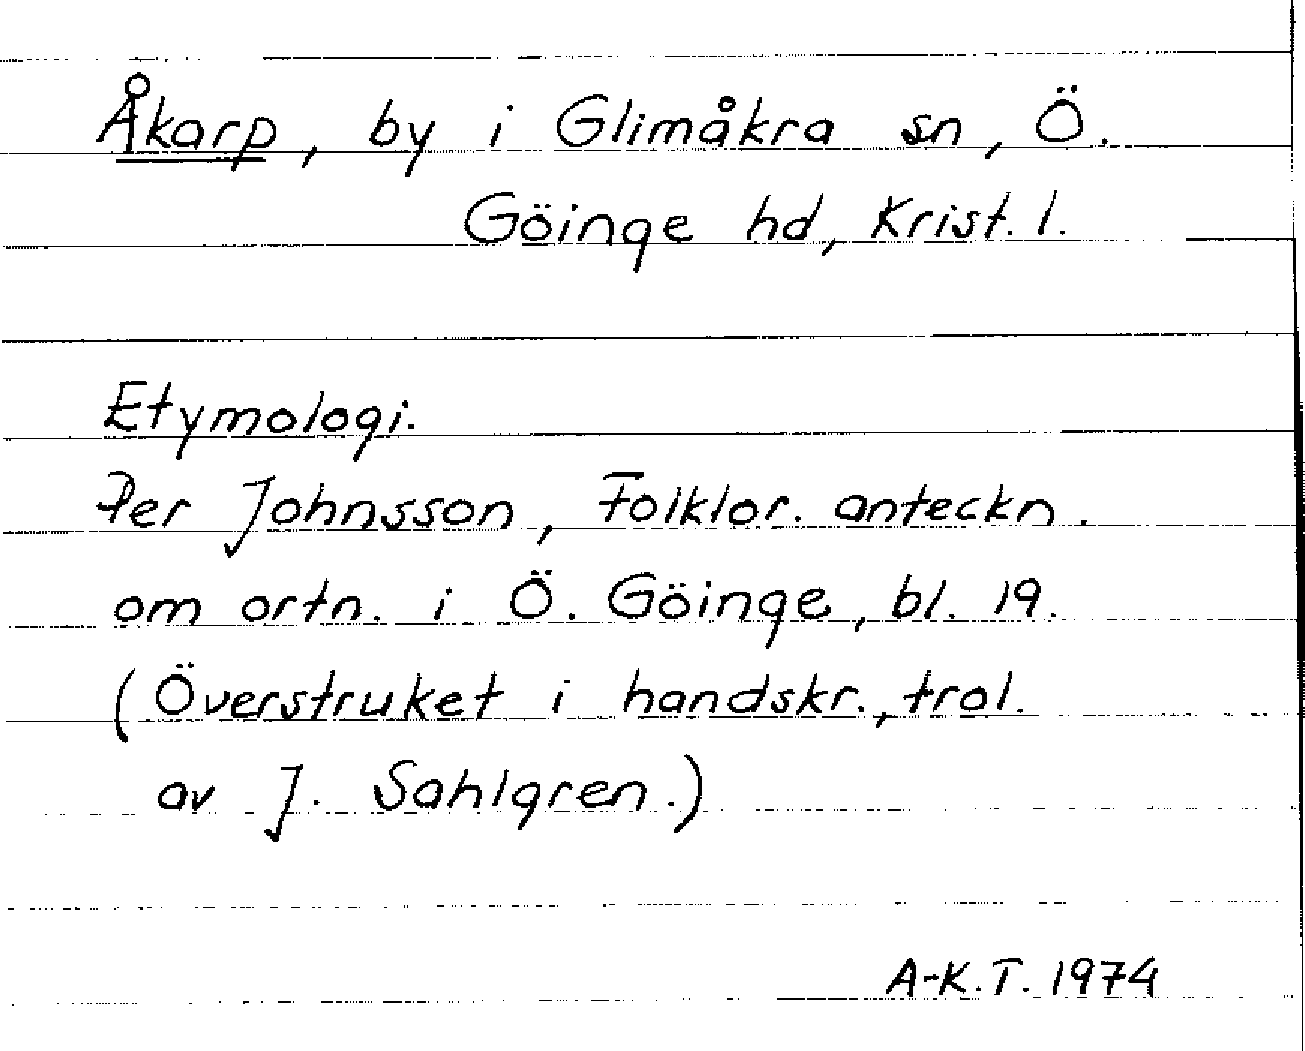 Åkarp, by i Glimåkra sn, Ö.
Göinge hd, Krist. l.
Etymologi.
Per Johnsson, Folklor. anteckn.
om ortn. i Ö. Göinge, bl. 19.
(Överstruket i handskr., trol.
av J. Sahlgren.)
A-K.T. 1974